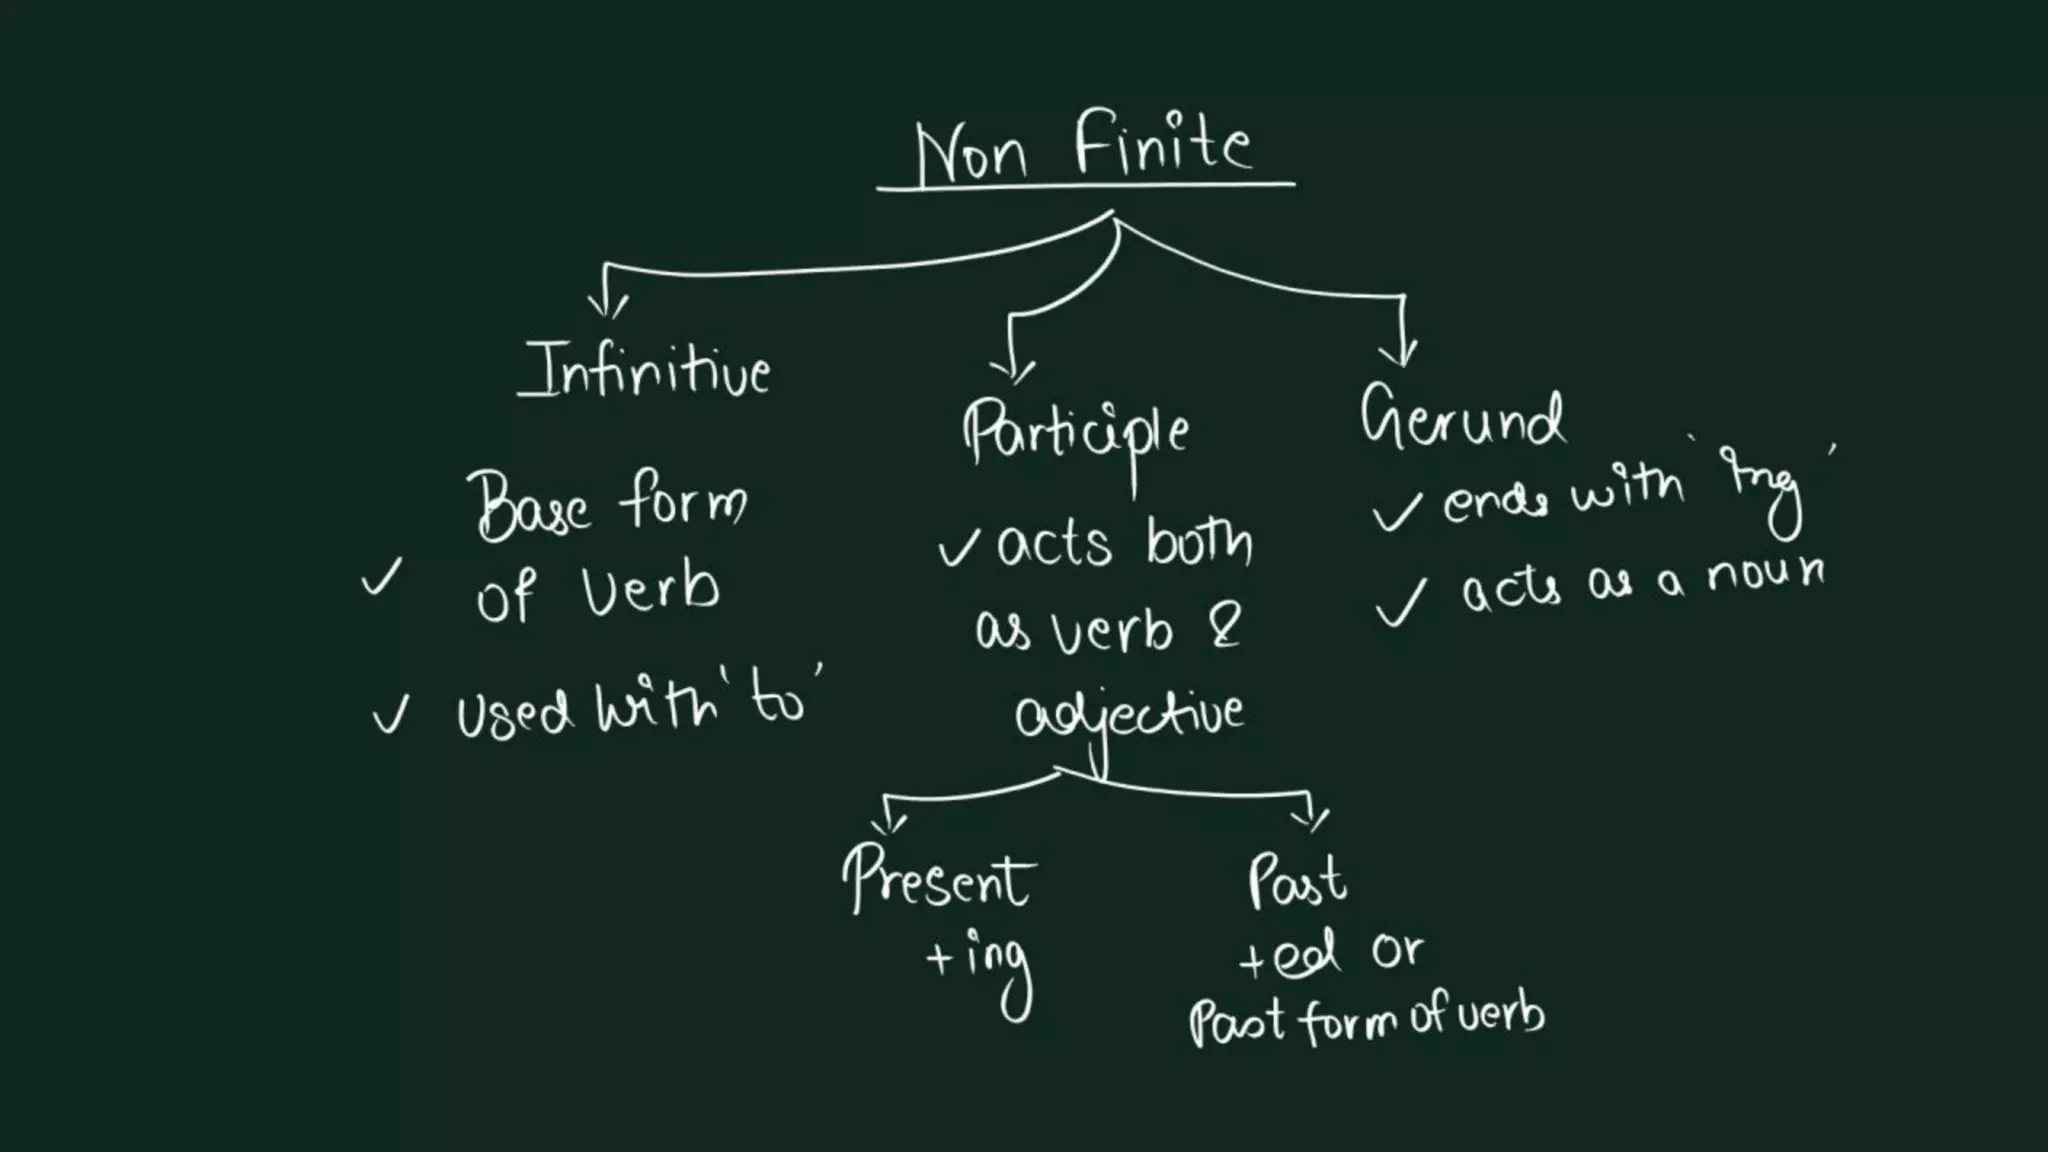 Non Finite
Infinitive
Base form
of verb
used with 'to'
Participle
acts both
as verb &
adjective
Gerund
ends with 'ing'
acts as a noun
Present
+ing
Past
+ed or
Past form of verb